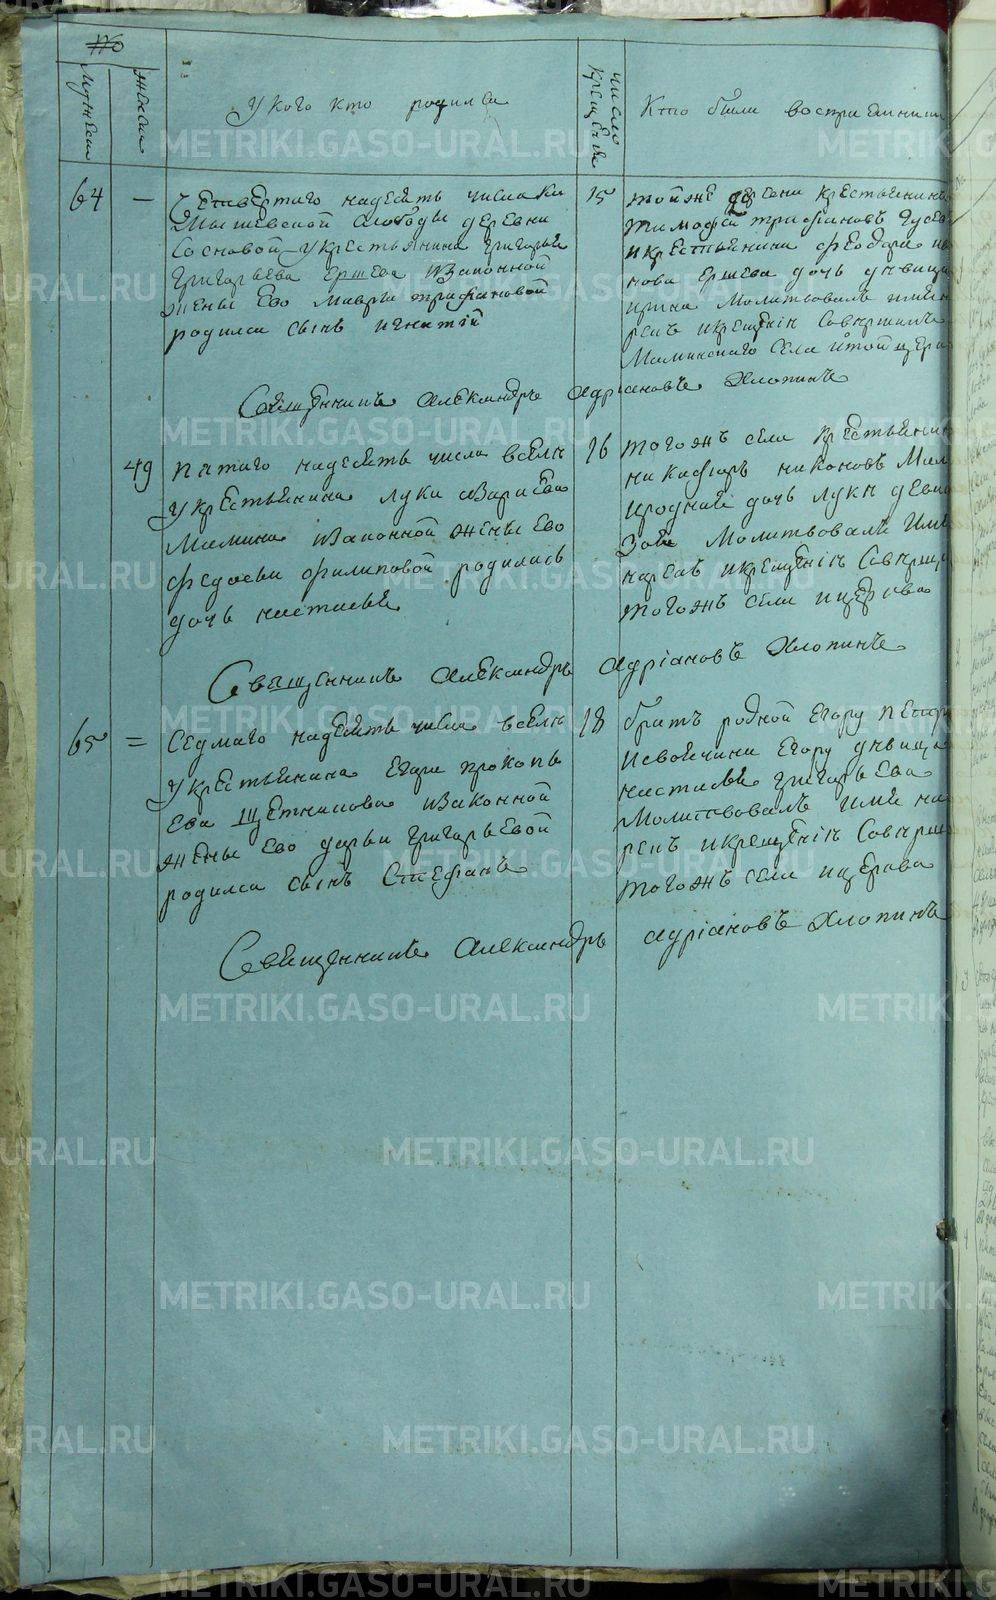 170
Мужеск
женска
У кого кто родился
число крещения
Кто были восприемники
64 —
Четвертаго надесять числа Ка
мышевской слободы деревни
Сосновой у крестьянина Григорья
Григорьева Ершева и законной
жены ево Мавры Трифановой
родился сынъ Игнатий
15
той же деревни крестьянинъ
Тимофей Трифановъ
и крестьянина Феодора ива
нова Ершева дочь девица
Ирина молитвовалъ имя на
рекъ и крещение совершилъ
Маминскаго села и той церкви
Священникъ Александръ Адриановъ Хлопинъ
49
пятаго надесять числа в селе
у крестьянина Луки
Мамина и законной жены ево
Федосьи Филиповой родилась
дочь Настасья
16
того жъ села крестьянинъ
Никифоръ Никоновъ Мам
и родная дочь Луки девица
молитвовалъ имя
нарекъ и крещение соверши
того жъ села и церкви
Священникъ Александръ Адриановъ Хлопинъ
65 =
Седмаго надесять числа в селе
у крестьянина Егора Прокопь
ева Щетникова и законной
жены ево Дарьи Григорьевой
родился сынъ Стефанъ
18
братъ родной Егору Петръ
и своячина Егору девица
Настасья Григорьева
Молитвовалъ имя на
рекъ и крещение соверши
того жъ села и церкви
Священникъ Александръ Адриановъ Хлопинъ
METRIKI.GASO-URAL.RU